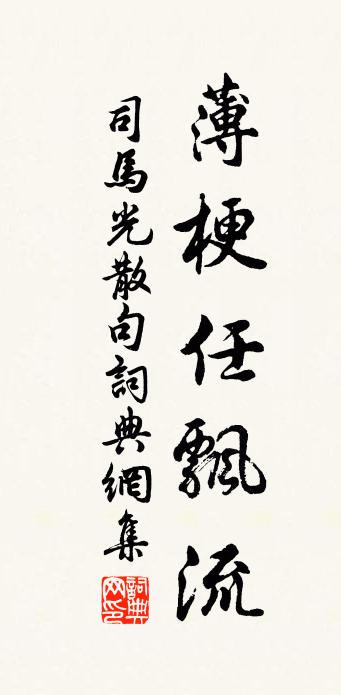 薄梗任飄流
司馬光散句詞典網集
詞典網印